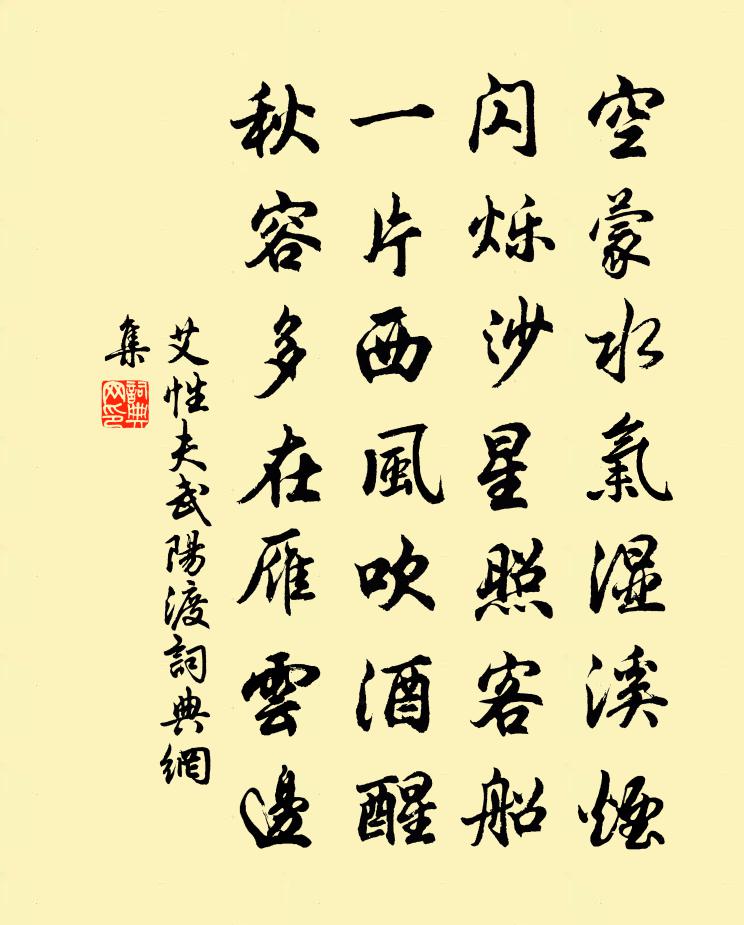 空蒙水氣湿溪煙
闪烁沙星照客船
一片西風吹酒醒
秋容多在雁雲邊
艾性夫武陽渡詞典網
集
詞典網印